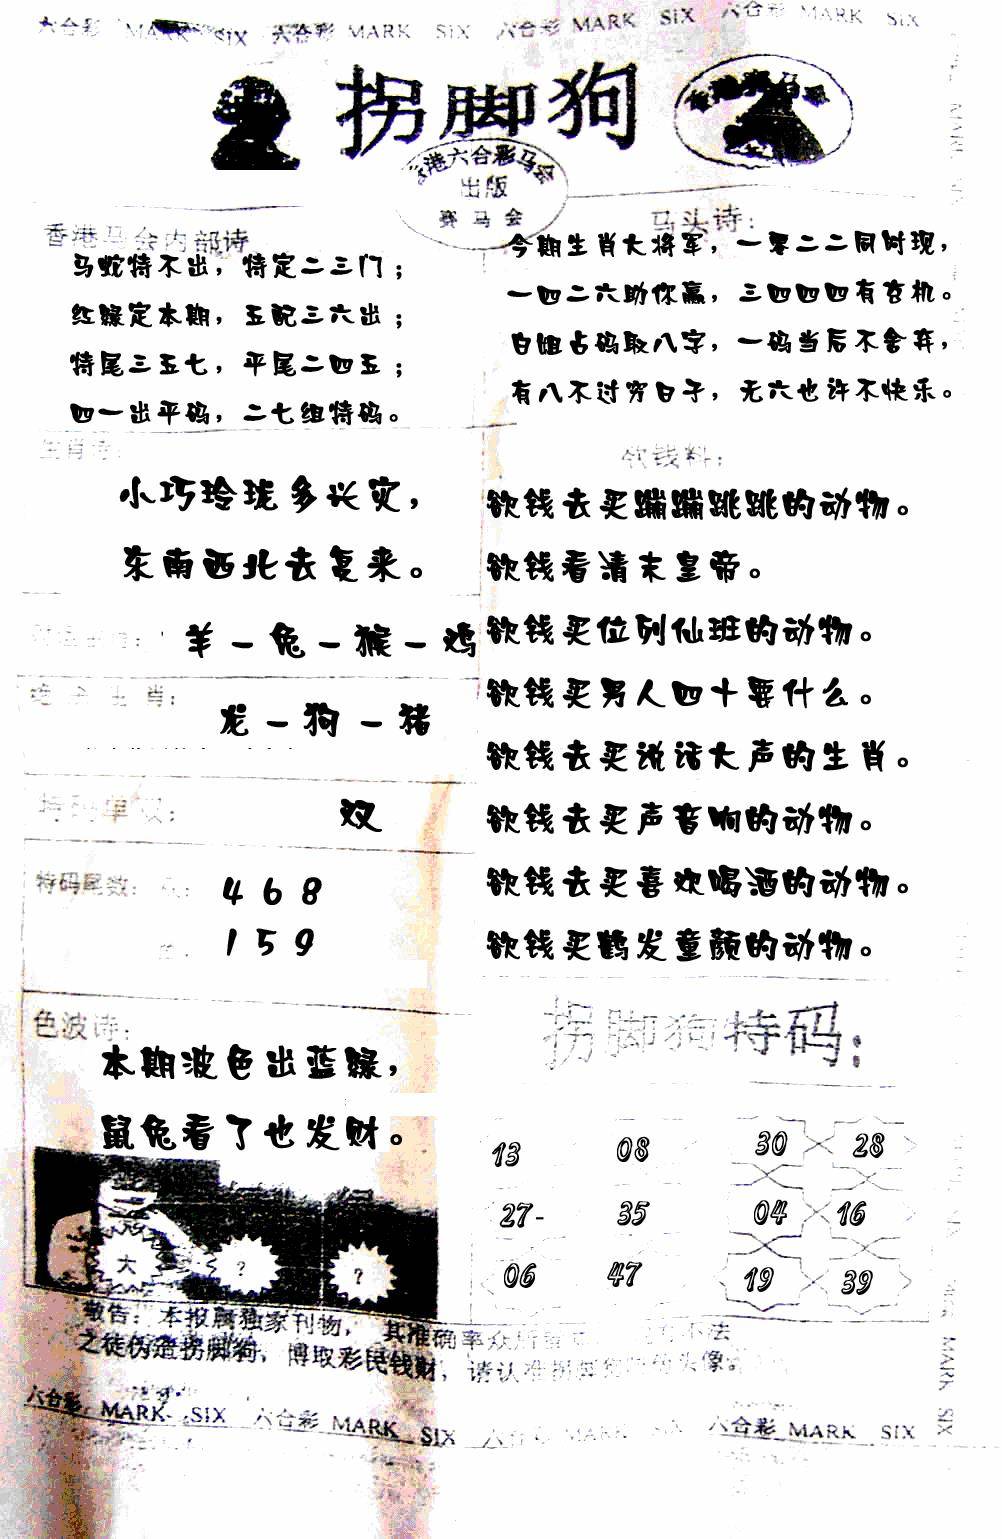 六合彩 MARK SIX 六合彩 MARK SIX 六合彩 MARK SIX 六合彩 MARK SIX
拐脚狗
香港六合彩马会
出版
赛马会
香港马会内部诗
马蛇特不出，特定二三门；
红绿定本期，五配三六出；
特尾三五七，平尾二四五；
四一出平码，二七组特码。
马头诗：
今期生肖大将军，一零二二同时现，
一四二六助你赢，三四四四有玄机。
白姐占码取八字，一码当后不舍弃，
有八不过穷日子，无六也许不快乐。
生肖诗：
小巧玲珑多兴灾，
东南西北去复来。
羊－兔－猴－鸡
生肖：
龙－狗－猪
特码单双：
双
特码尾数：
4 6 8
1 5 9
色波诗：
本期波色出蓝绿，
鼠兔看了也发财。
大 ? ?
欲钱料：
欲钱去买蹦蹦跳跳的动物。
欲钱看清末皇帝。
欲钱买位列仙班的动物。
欲钱买男人四十要什么。
欲钱去买说话大声的生肖。
欲钱去买声音响的动物。
欲钱去买喜欢喝酒的动物。
欲钱买鹤发童颜的动物。
拐脚狗特码：
13 08 30 28
27- 35 04 16
06 47 19 39
敬告：本报属独家刊物，其准确率众所 不法
之徒伪造拐脚狗，博取彩民钱财，请认准拐脚狗 头像
六合彩 MARK SIX 六合彩 MARK SIX 六合彩 MARK SIX 六合彩 MARK SIX
MARK SIX